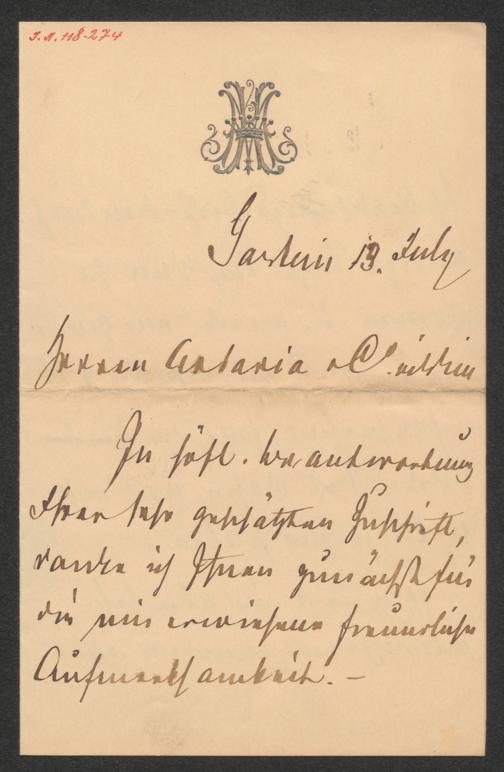 I.N. 118-274
Gastein 13. July
Herren Artaria & Co. in Wien
In höfl. Beantwortung
Ihrer sehr geschätzten Zuschrift,
danke ich Ihnen zunächst für
die mir erwiesene freundliche
Aufmerksamkeit. –